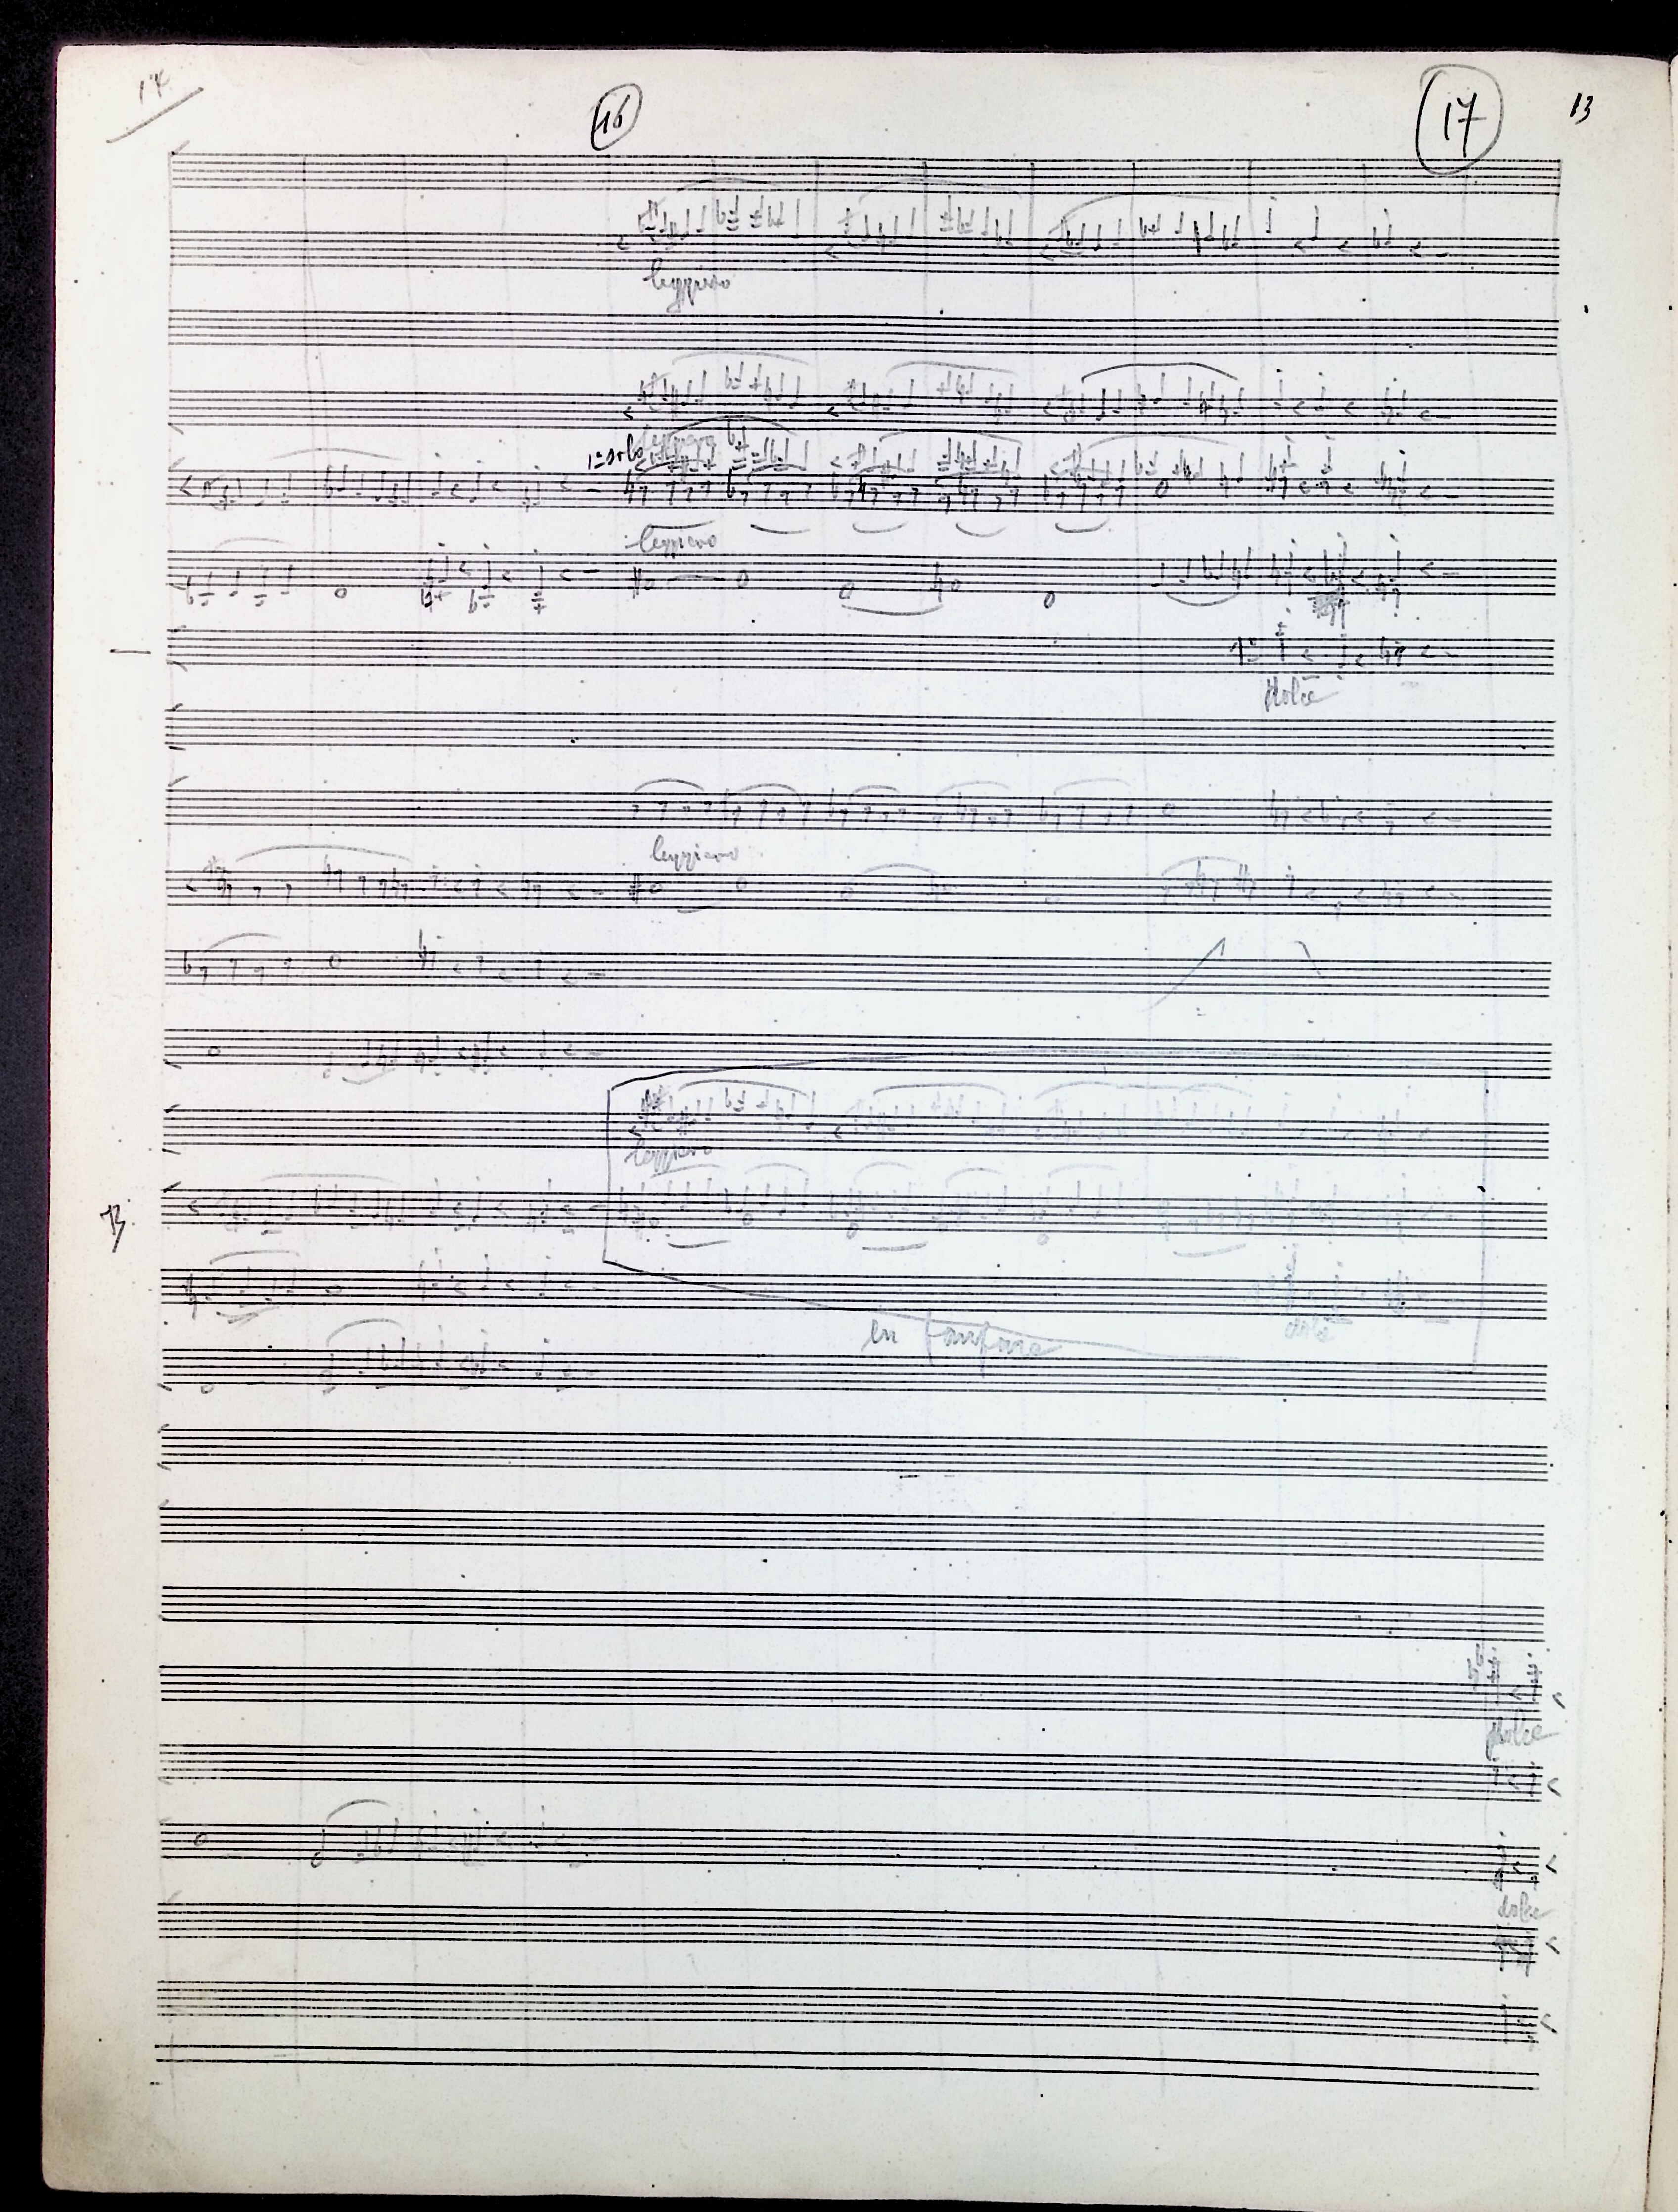 14
16
17
13
leggiero
1º solo
leggiero
leggiero
1º
dolce
leggiero
leggiero
B
en fanfare
dolce
dolce
dolce